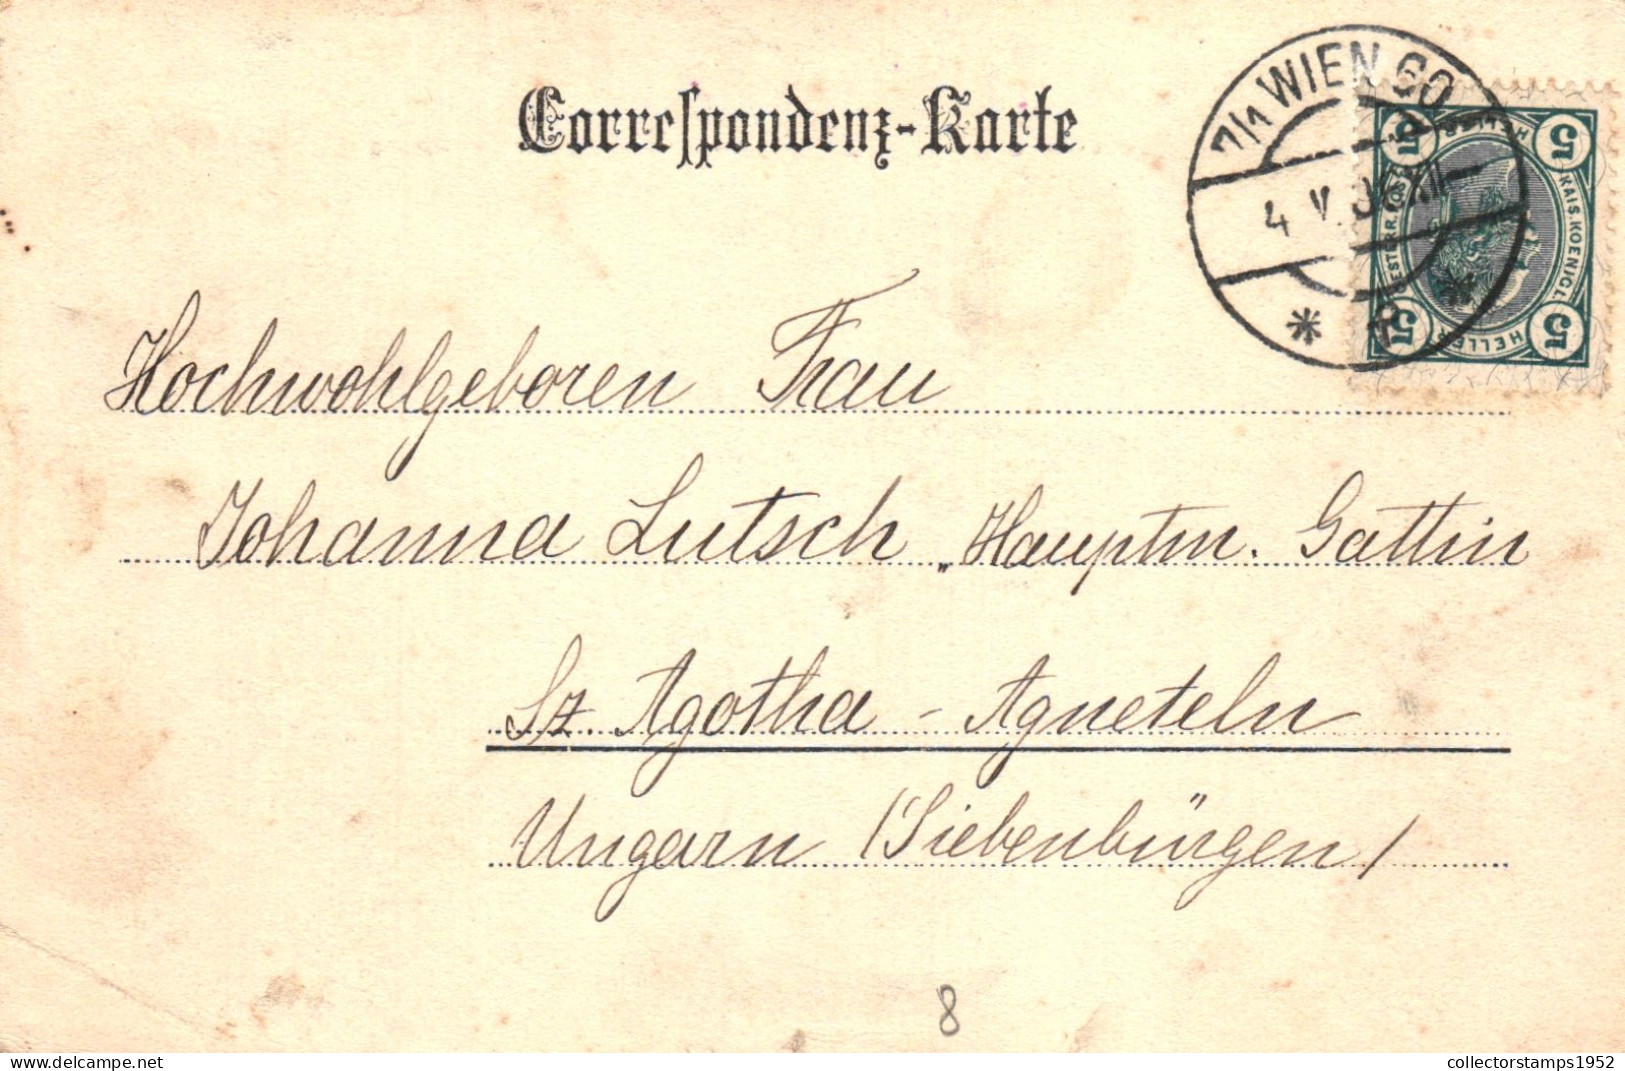 Correspondenz-Karte
7/1 WIEN
4 V
5 HELLER 5
KAIS. KOENIGL.
5 HELLER 5
Hochwohlgeboren Frau
Johanna Lutsch „Hauptm. Gattin
Sz. Agotha - Agneteln
Ungarn /Siebenbürgen/
8
https://www.delcampe.net
collectorstamps1952